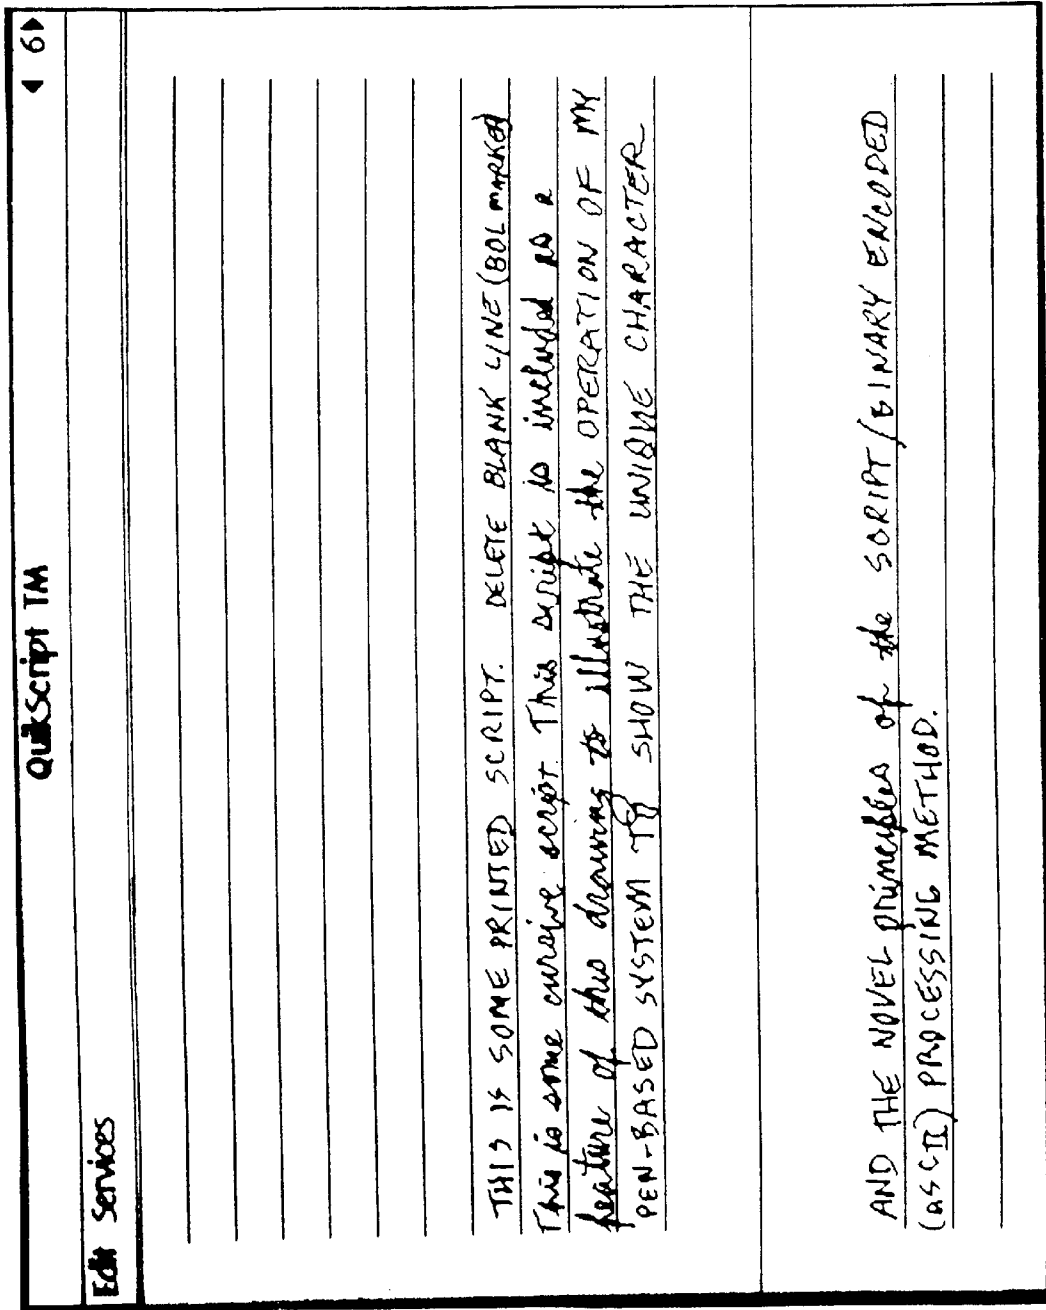 QuikScript TM
◄ 6►
Edit Services
THIS IS SOME PRINTED SCRIPT. DELETE BLANK LINE (BOL MARKED)
This is some cursive script. This script is included as a
feature of this drawing to illustrate the OPERATION OF MY
PEN-BASED SYSTEM TO SHOW THE UNIQUE CHARACTER
AND THE NOVEL principles of the SCRIPT/BINARY ENCODED
(ASCII) PROCESSING METHOD.